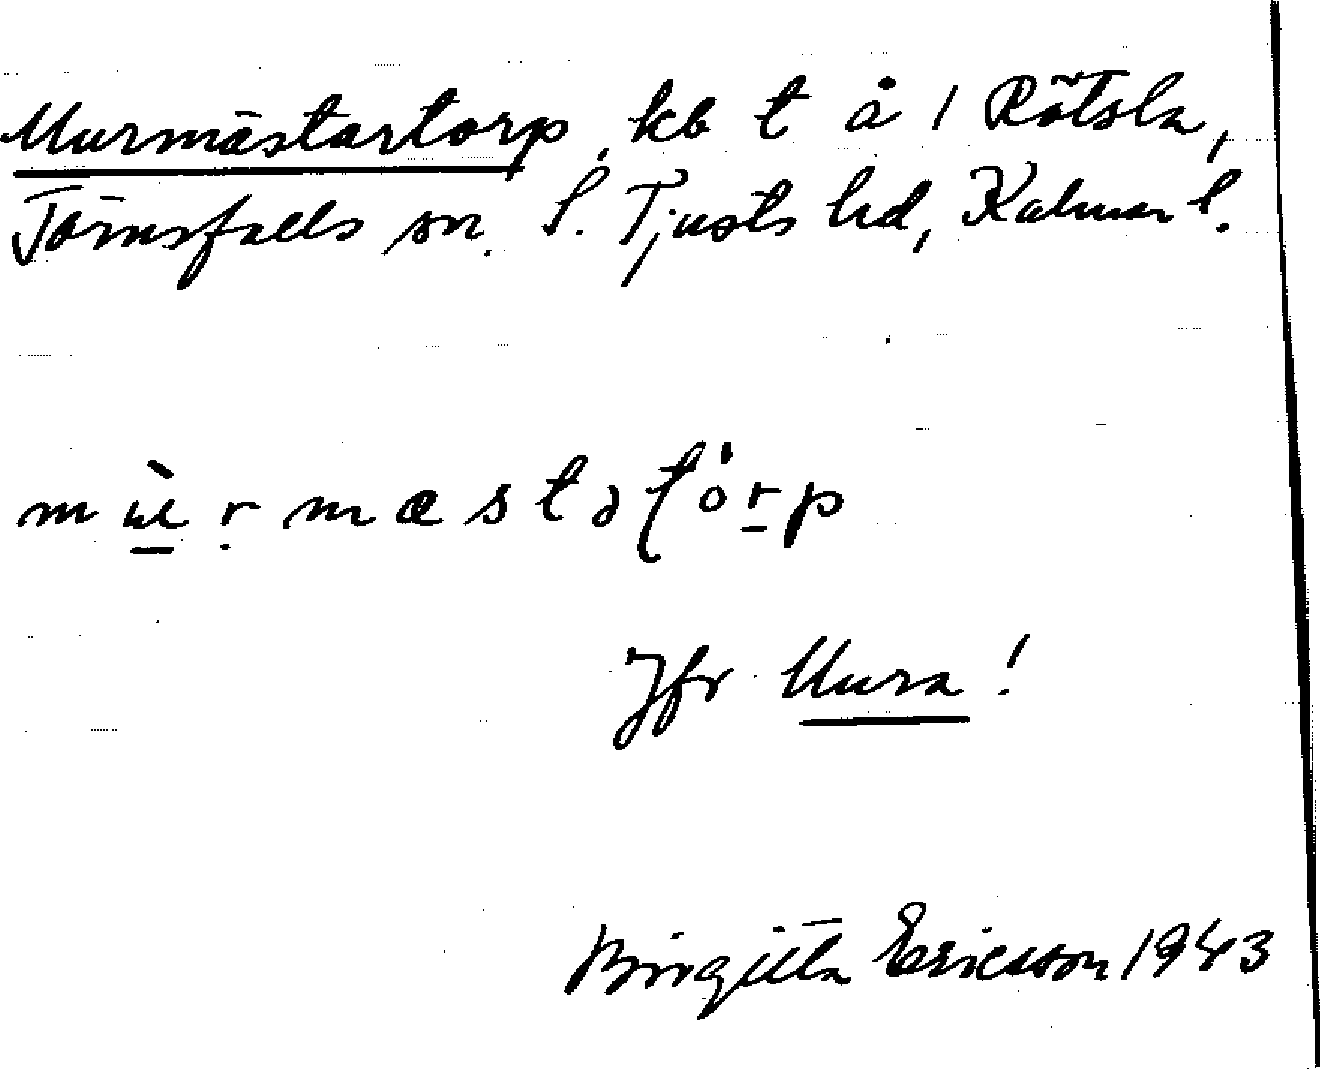 Murmästartorp, kb t å 1 Rötsla,
Törnsfalls sn. S. Tjusts hd, Kalmar l.
mùrmæstatórp
Jfr Mura!
Birgitta Ericsson 1943